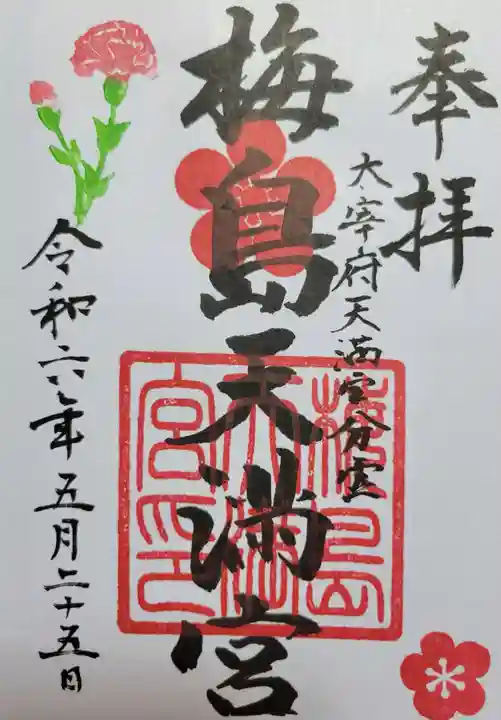 奉拝
太宰府天満宮分霊
梅島天満宮
梅島天満宮印
令和六年五月二十五日